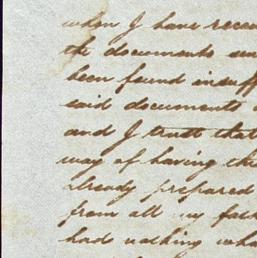 when I have rece
the documents
been found insuff
said documents
and I trust that
way of having the
already prepared
from all my
had nothing wha